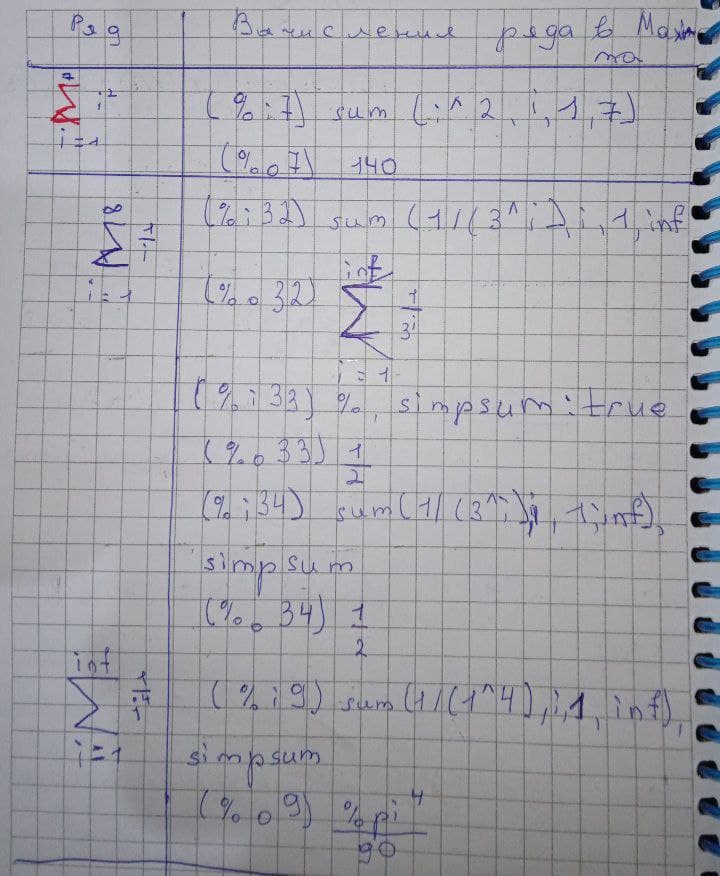 Ряд Вычисления ряда в Maxi
ma
7
∑ i^2
i=1
(%i7) sum (i^2, i, 1, 7)
(%o7) 140
∞
∑ 1/i
i=1
(%i32) sum (1/(3^i), i, 1, inf
(%o32) inf
∑ 1/3^i
i=1
(%i33) %, simpsum:true
(%o33) 1/2
(%i34) sum(1/(3^i),i, 1, inf),
simpsum
(%o34) 1/2
inf
∑ 1/i^4
i=1
(%i9) sum(1/(1^4),i,1, inf),
simpsum
(%o9) %pi^4/90